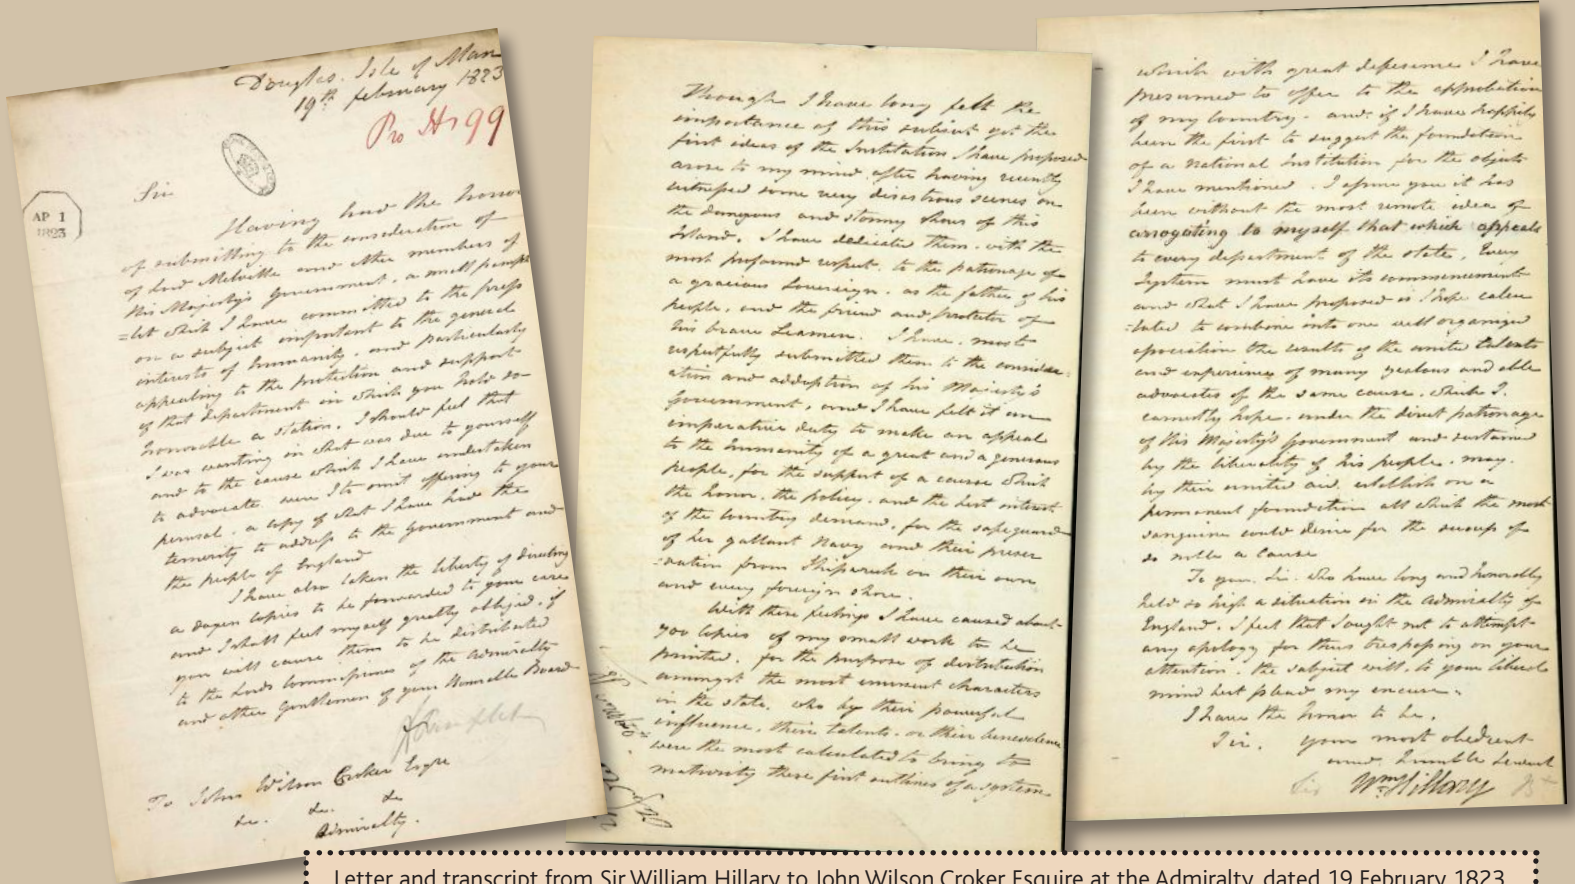 Douglas. Isle of Man
19th february 1823
Pro H 99
AP 1
1823
Sir
Having had the honor
of submitting to the consideration of
of Lord Melville and other members of
His Majesty's Government, a small pamph
=let which I have committed to the press
on a subject important to the general
interests of humanity, and particularly
appealing to the protection and support
of that department in which you hold so
honorable a station. I should feel that
I was wanting in what was due to yourself
and to the cause which I have undertaken
to advocate were I to omit offering to your
perusal, a copy of what I have had the
temerity to address to the Government and
the people of England
I have also taken the liberty of directing
a dozen copies to be forwarded to your care
and I shall feel myself greatly obliged, if
you will cause them to be distributed
to the Lords Commissioners of the Admiralty
and other Gentlemen of your Honorable Board
Pamphlet
To John Wilson Croker Esqre
&c. &c
Admiralty.
Though I have long felt the
importance of this subject yet the
first ideas of the Institution I have proposed
arose to my mind after having recently
witnessed some very disastrous scenes on
the dangerous and stormy shores of this
Island. I have dedicated them, with the
most profound respect, to the patronage of
a gracious Sovereign, as the father of his
people, and the friend and protector of
his brave Seamen. I have, most
respectfully submitted them to the consider=
ation and adoption of his Majesty's
Government, and I have felt it an
imperative duty to make an appeal
to the humanity of a great and a generous
people, for the support of a cause which
the honor, the policy, and the best interest
of the Country demand, for the safeguard
of her gallant Navy and their preser
=vation from Shipwreck on their own
and every foreign shore.
With these feelings I have caused about
700 Copies of my small work to be
printed, for the purpose of distribution
amongst the most eminent characters
in the state, who by their powerful
influence, their talents, or their benevolence
were the most calculated to bring to
maturity these first outlines of a system
which with great deference I have
presumed to offer to the approbation
of my Country. and, if I have happily
been the first to suggest the foundation
of a national Institution for the objects
I have mentioned. I assure you it has
been without the most remote idea of
arrogating to myself that which appeals
to every department of the state, Every
System must have its commencement
and what I have proposed is I hope calcu
=lated to combine into one well organized
association the results of the united talents
and experience of many zealous and able
advocates of the same cause, which I,
earnestly hope, under the direct patronage
of His Majesty's Government and sustained
by the liberality of his people, may,
by their united aid, establish on a
permanent foundation all which the most
sanguine could desire for the success of
so noble a cause
To you, Sir, who have long and honorably
held so high a situation in the Admiralty of
England, I feel that I ought not to attempt
any apology for thus trespassing on your
attention, the subject will, to your liberal
mind best plead my excuse.
I have the honor to be,
Sir, your most obedient
and humble Servant
Wm Hillary
Letter and transcript from Sir William Hillary to John Wilson Croker Esquire at the Admiralty, dated 19 February 1823